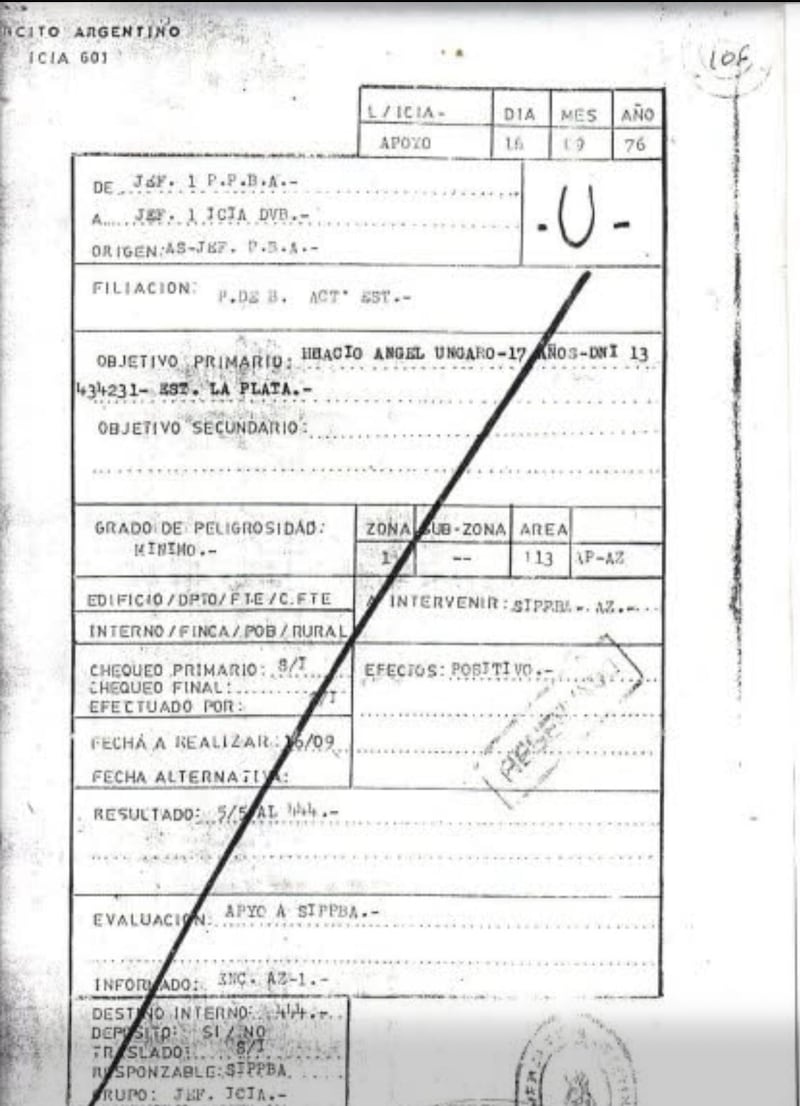 CITO ARGENTINO
ICIA 601
106
L/ICIA- DIA MES AÑO
APOYO 16 09 76
DE JEF. 1 P.P.B.A.-
A JEF. 1 ICIA DVB.-
- U -
ORIGEN: AS-JEF. P.B.A.-
FILIACION: P.DE B. ACT' EST.-
OBJETIVO PRIMARIO: HBACIO ANGEL UNGARO-17 AÑOS-DNI 13
434231- EST. LA PLATA.-
OBJETIVO SECUNDARIO:
GRADO DE PELIGROSIDAD: ZONA SUB-ZONA AREA
MINIMO.- 1 -- 113 AP-AZ
EDIFICIO/DPTO/FTE/C.FTE A INTERVENIR: SIPPBA- AZ.-
INTERNO/FINCA/POB/RURAL
CHEQUEO PRIMARIO: S/I EFECTOS: POSITIVO.-
CHEQUEO FINAL:
EFECTUADO POR: S/I
RESERVADO
FECHA A REALIZAR: 16/09
FECHA ALTERNATIVA:
RESULTADO: 5/5 AL 444.-
EVALUACION: APYO A SIPPBA.-
INFORMADO: ENC. AZ-1.-
DESTINO INTERNO: 444.-
DEPOSITO: SI / NO
TRASLADO: S/I
RESPONZABLE: SIPPBA
GRUPO: JEF. ICIA.-